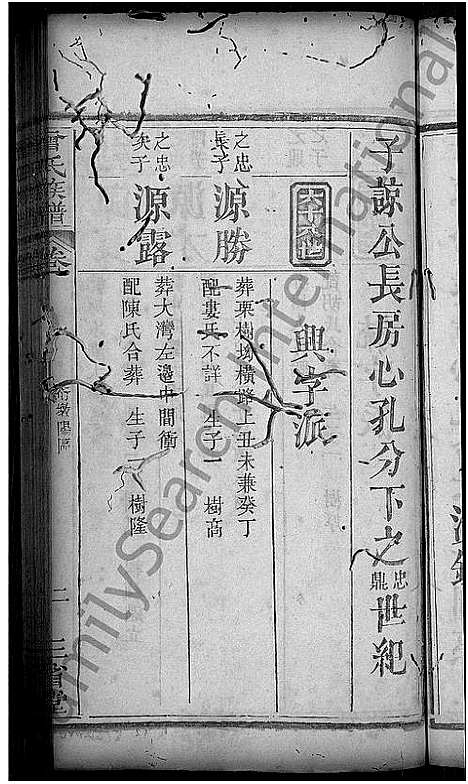 子諒公長房心孔分下之忠鼎世紀
六十六世
興字派
之忠長子
源勝
葬栗樹坳橫路上丑未兼癸丁
配婁氏不詳 生子一 樹高
之忠次子
源露
葬大灣左邊中間衝
配陳氏合葬 生子一 樹隆
曾氏族譜
卷
二 三省堂
FamilySearch International